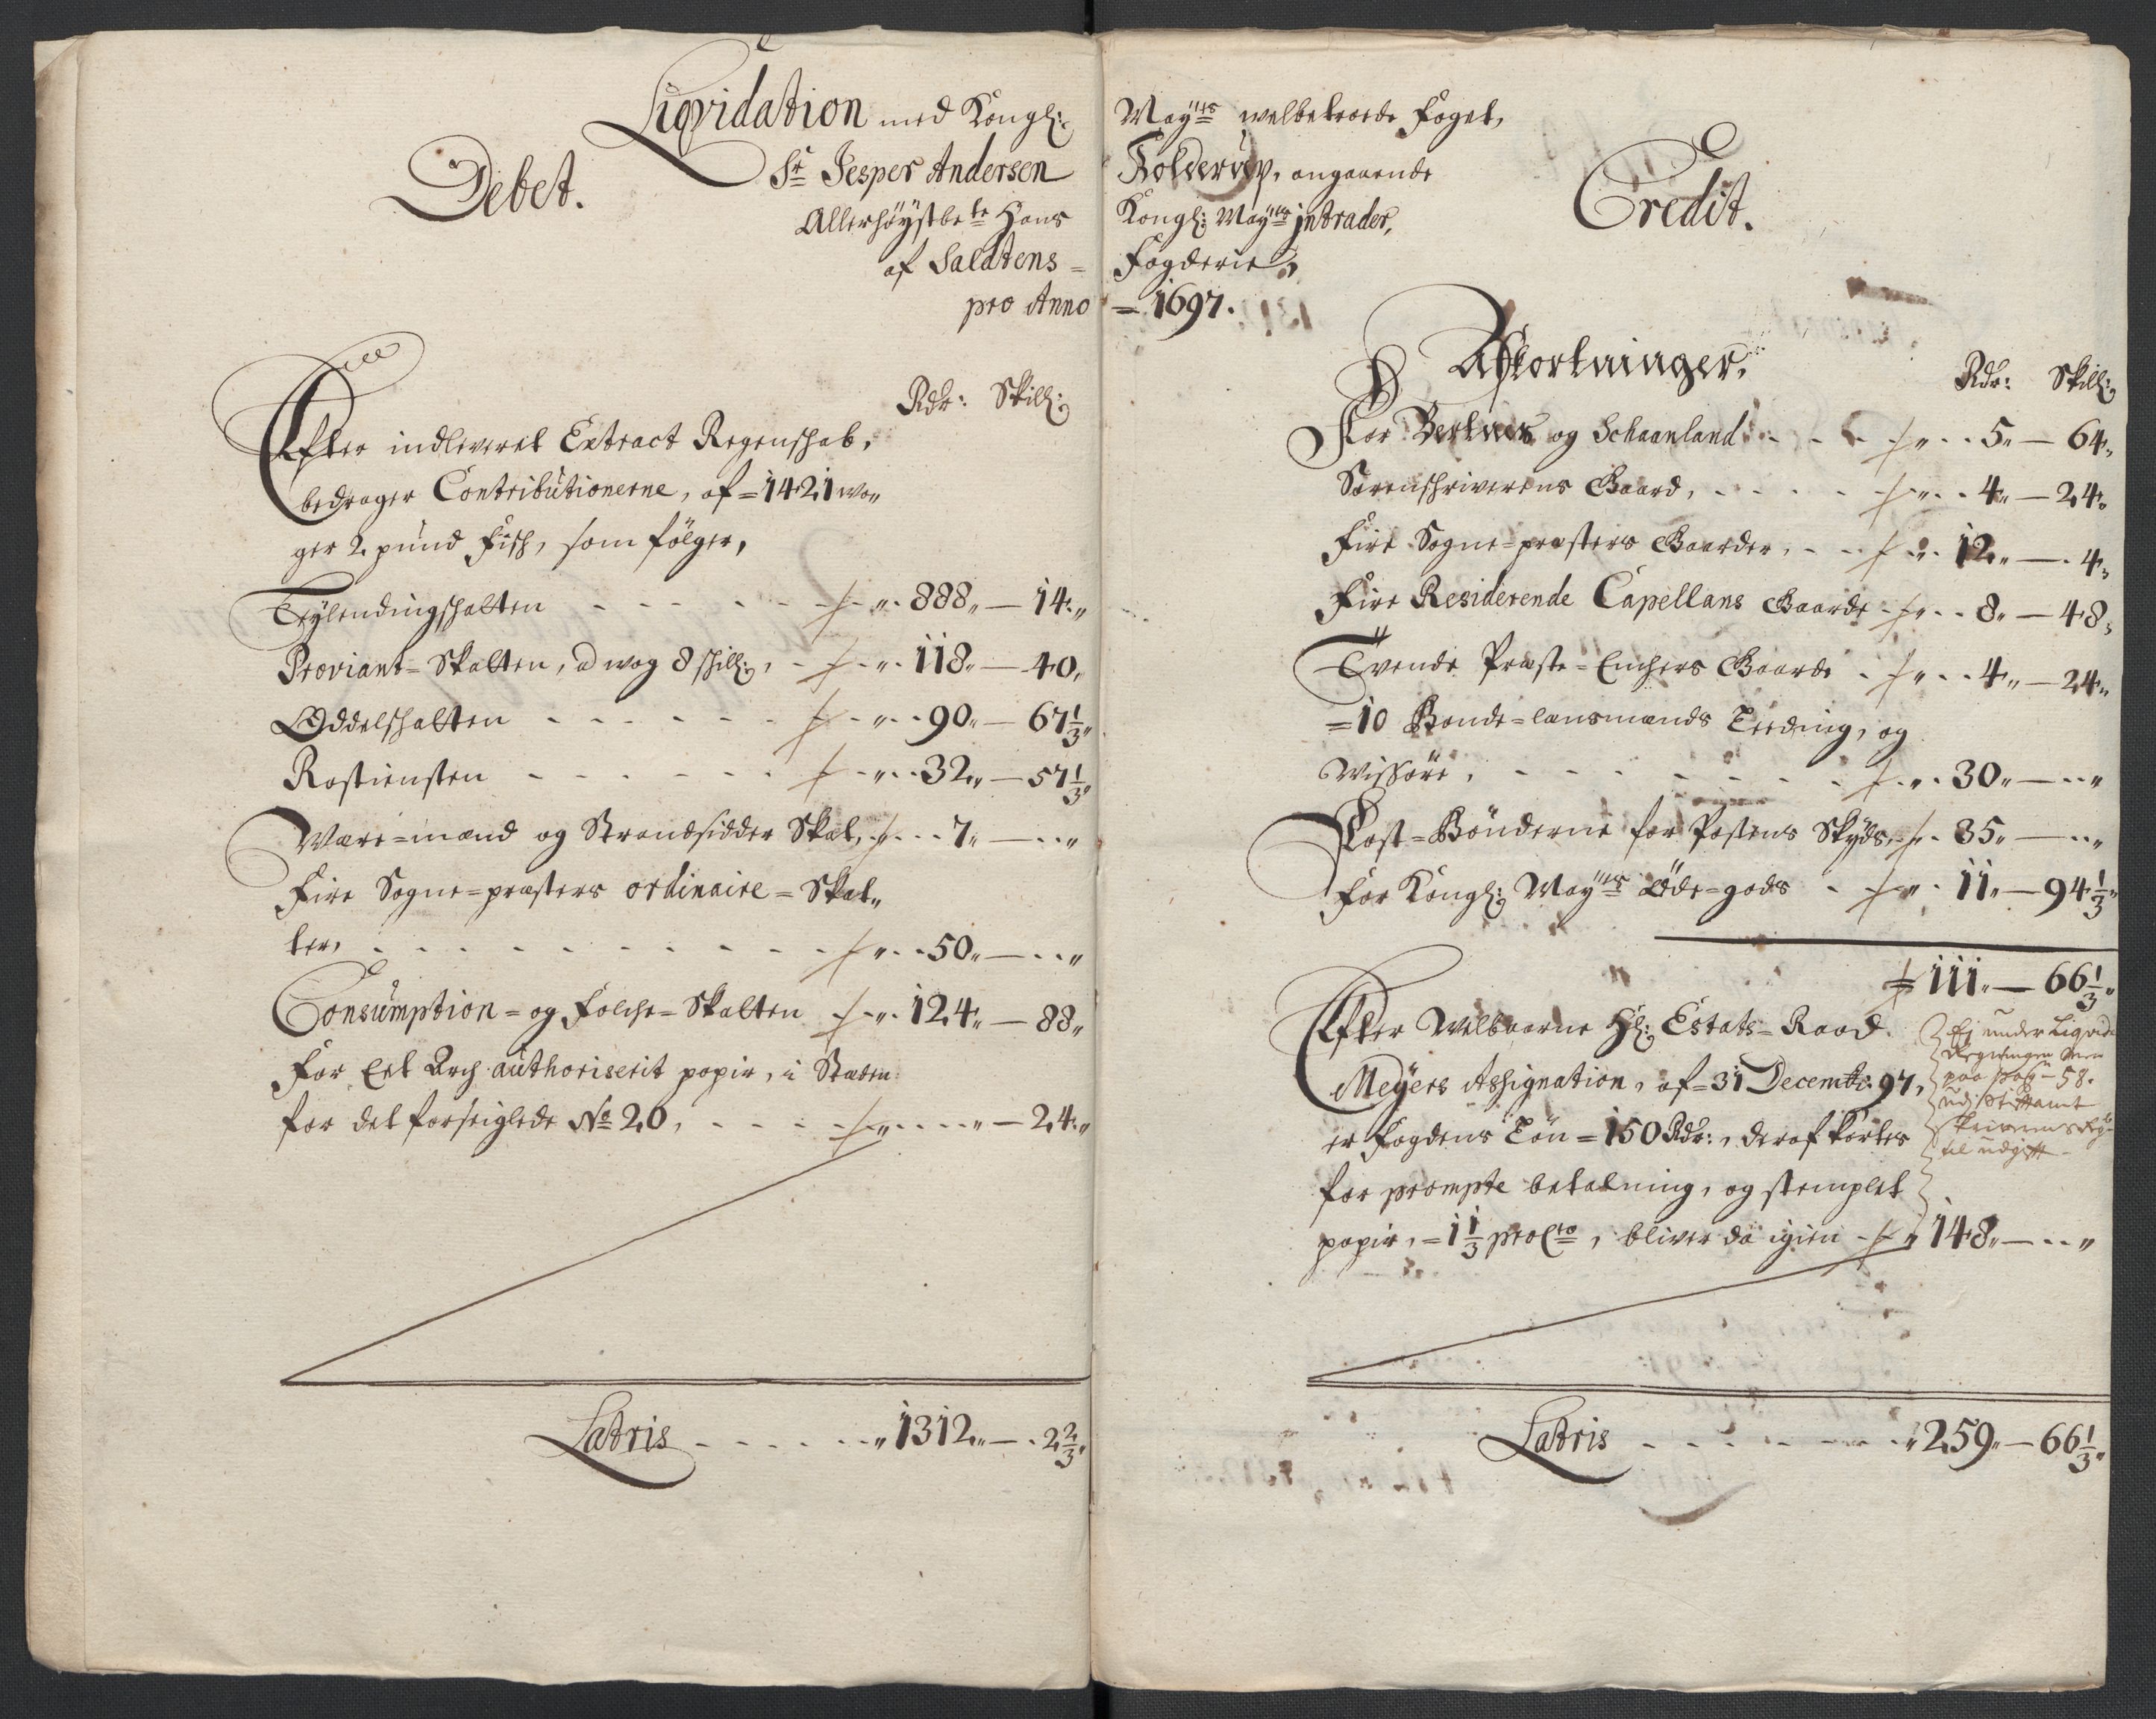 Liqvidation med Kongl: Mayts welbetroede foget,
Sr Jesper Andersen Kolderup, angaaende
Allerhöystbete Hans Kongl: Mayts jntrader,
af Saldtens = Fogderie,
pro Anno = 1697.
Debet.
Rdr: Skill:
Efter indleveret Extract Regenskab,
bedrager Contributionerne, af = 1421 wo„
ger 2 pund fisk, som fölger,
Leylendingskatten - - - „ 888„ — 14„
Proviant-Skatten, a wog 8 skill:, - „ 118„ — 40„
Oddelskatten - - - „ 90„ — 67 1/3„
Rostiensten - - - „ 32„ — 57 1/3„
Være-mænd og Strandsidder Skat, - - 7„ — - - „
Fire Sogne-præsters ordinaire = Skat„
ter, - - - „ 50„ — - - „
Consumption = og Folche-Skatten - „ 124„ — 88„
For Eet Arch authoriserit papir, i Stæden
for det forseiglede No 20, - - - „ - - „ — 24„
Latris - - - „ 1312„ — 2 2/3„
Credit.
Afkortninger,
Rdr: Skill:
For Bertnes og Schaanland - - - „ 5„ — 64„
Sorenskriverens Gaard, - - - „ 4„ — 24„
Fire Sogne-præsters Gaarder, - - „ 12„ — 4„
Fire Residerende Capellans Gaarde - „ 8„ — 48„
Tvende Præste-Enchers Gaarde - „ 4„ — 24„
= 10 Bonde-lænsmænds Leeding, og
Wissöre, - - - „ 30„ — - - „
Post-Bönderne for Postens Skyds, - 35„ — - - „
For Kongl: Mayts Öde-gods - - „ 11„ — 94 1/3„
111„ — 66 1/3„
Efter Welbaarne Hl: Estats-Raad
Meyers Assignation, af = 31 Decembr: 97,
er Fogdens Lön = 150 Rdr:, deraf kortes
for prompte betalning, og stemplet
papir, = 1 1/3 pro Cto, bliver da igien - „ 148„ — - - „
Ej under Liqvid
Regningen men
paa pag - 58.
udj Stiftamt
skriverens Reg
til udgift
Latris - - - „ 259„ — 66 1/3„